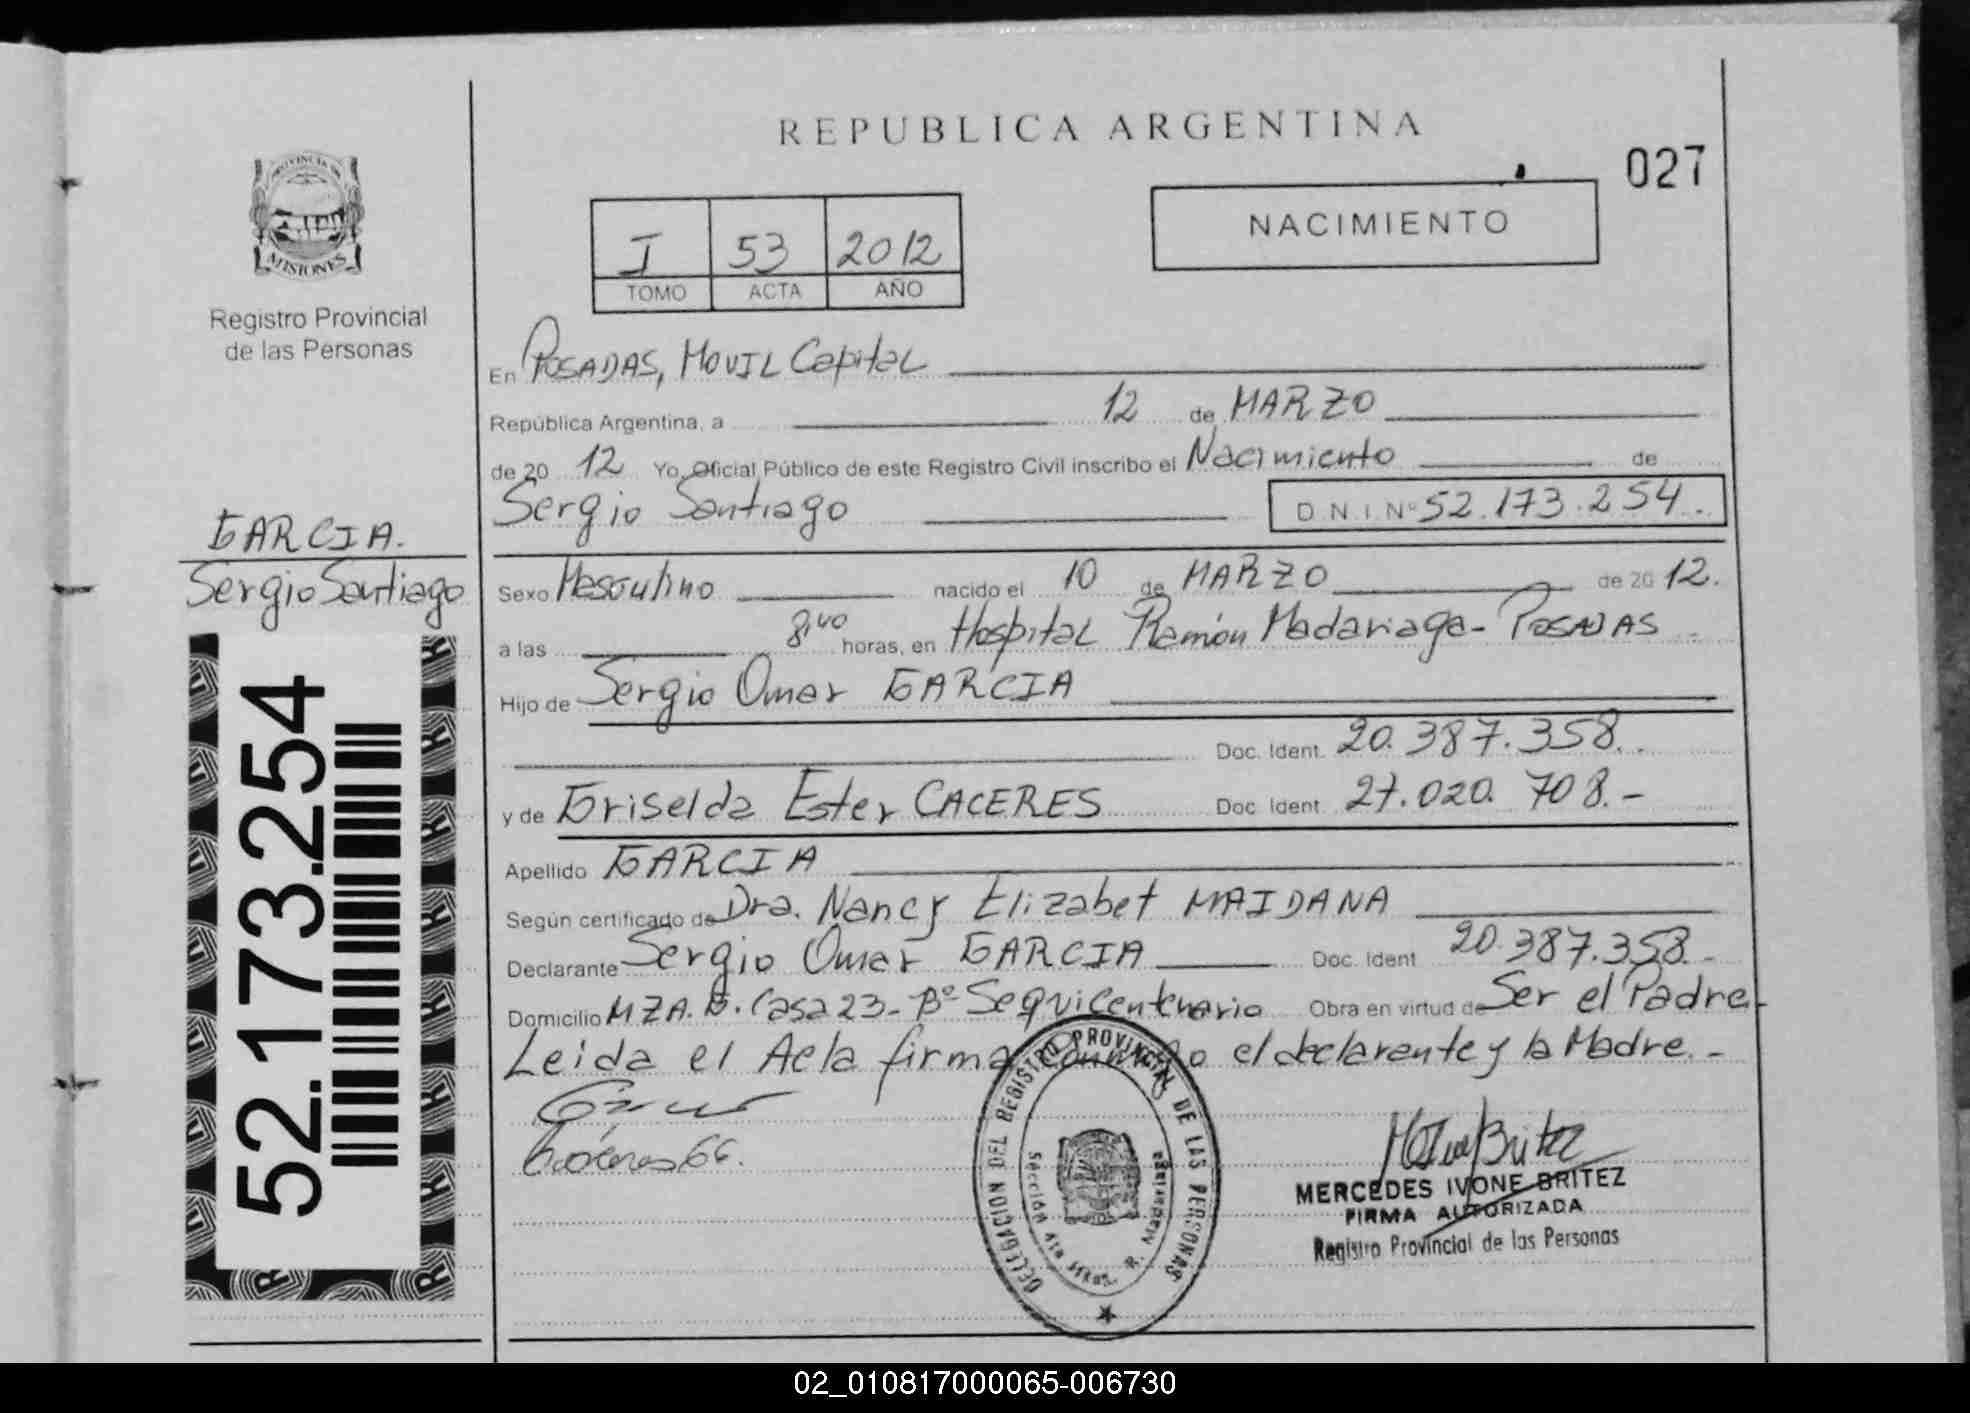 REPUBLICA ARGENTINA
027
PROVINCIA DE
MISIONES
Registro Provincial
de las Personas
I 53 2012
TOMO ACTA AÑO
NACIMIENTO
En POSADAS, MOVIL Capital
República Argentina, a 12 de MARZO
de 20 12 Yo, Oficial Público de este Registro Civil inscribo el Nacimiento de
Sergio Santiago D.N.I. Nº 52.173.254.-
GARCIA.
Sergio Santiago
52.173.254
Sexo Masculino nacido el 10 de MARZO de 20 12.
a las 8,40 horas, en Hospital Ramón Madariaga - POSADAS
Hijo de Sergio Omar GARCIA
Doc. Ident. 20.387.358.
y de Griselda Ester CACERES Doc. Ident. 27.020.708.-
Apellido GARCIA
Según certificado de Dra. Nancy Elizabet MAIDANA
Declarante Sergio Omar GARCIA Doc. Ident 20.387.358.-
Domicilio MZA. B. Casa 23 - Bº Sequicentenario Obra en virtud de Ser el Padre.-
Leida el Acta firma el declarante y la Madre.-
DELEGACION DEL REGISTRO PROVINCIAL DE LAS PERSONAS
MERCEDES IVONE BRITEZ
FIRMA AUTORIZADA
Registro Provincial de las Personas
02_010817000065-006730